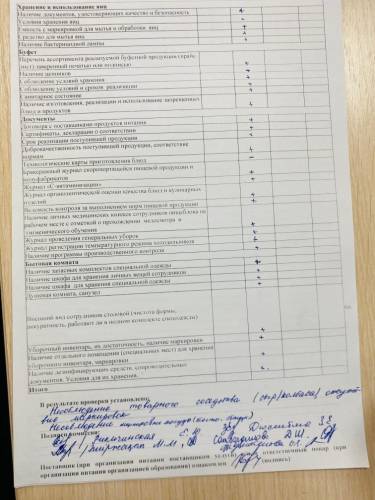 Хранение и использование яиц
Наличие документов, удостоверяющих качество и безопасность +
Условия хранения яиц -
Емкость с маркировкой для мытья и обработки яиц +
Средство для мытья яиц +
Наличие бактерицидной лампы
Буфет
Перечень ассортимента реализуемой буфетной продукции (прайс-
лист) заверенный печатью или подписью +
Наличие ценников +
Соблюдение условий хранения +
Соблюдение условий и сроков реализации +
Санитарное состояние +
Наличие изготовления, реализации и использование запрещенных
блюд и продуктов
Документы
Договора с поставщиками продуктов питания +
Сертификаты, декларации о соответствии +
Срок реализации поступившей продукции +
Доброкачественность поступившей продукции, соответствие
нормам
Технологические карты приготовления блюд -
Бракеражный журнал скоропортящейся пищевой продукции и
полуфабрикатов +
Журнал «С-витаминизации» +
Журнал органолептической оценки качества блюд и кулинарных
изделий +
Ведомость контроля за выполнением норм пищевой продукции +
Наличие личных медицинских книжек сотрудников пищеблока на
рабочем месте с отметкой о прохождении медосмотра и
гигиенического обучения +
Журнал проведения генеральных уборок +
Журнал регистрации температурного режима холодильников +
Наличие программы производственного контроля +
Бытовая комната
Наличие запасных комплектов специальной одежды +
Наличие шкафа для хранения личных вещей сотрудников +
Наличие шкафа для хранения специальной одежды +
Душевая комната, санузел
Внешний вид сотрудников столовой (чистота формы,
аккуратность, работают ли в полном комплекте спецодежды) +
Уборочный инвентарь, их достаточность, наличие маркировки +
Наличие отдельного помещения (специальных мест) для хранения
уборочного инвентаря, маркировки +
Наличие дезинфицирующих средств, сопроводительных
документов. Условия для их хранения.
Итого
В результате проверки установлено:
Несоблюдение товарного соседства
маркировки
Несоблюдение
Подписи комиссии:
Поставщик (при организации питания поставщиком услуги) ответственный повар (при
организации питания организацией образования) ознакомлен (подпись)